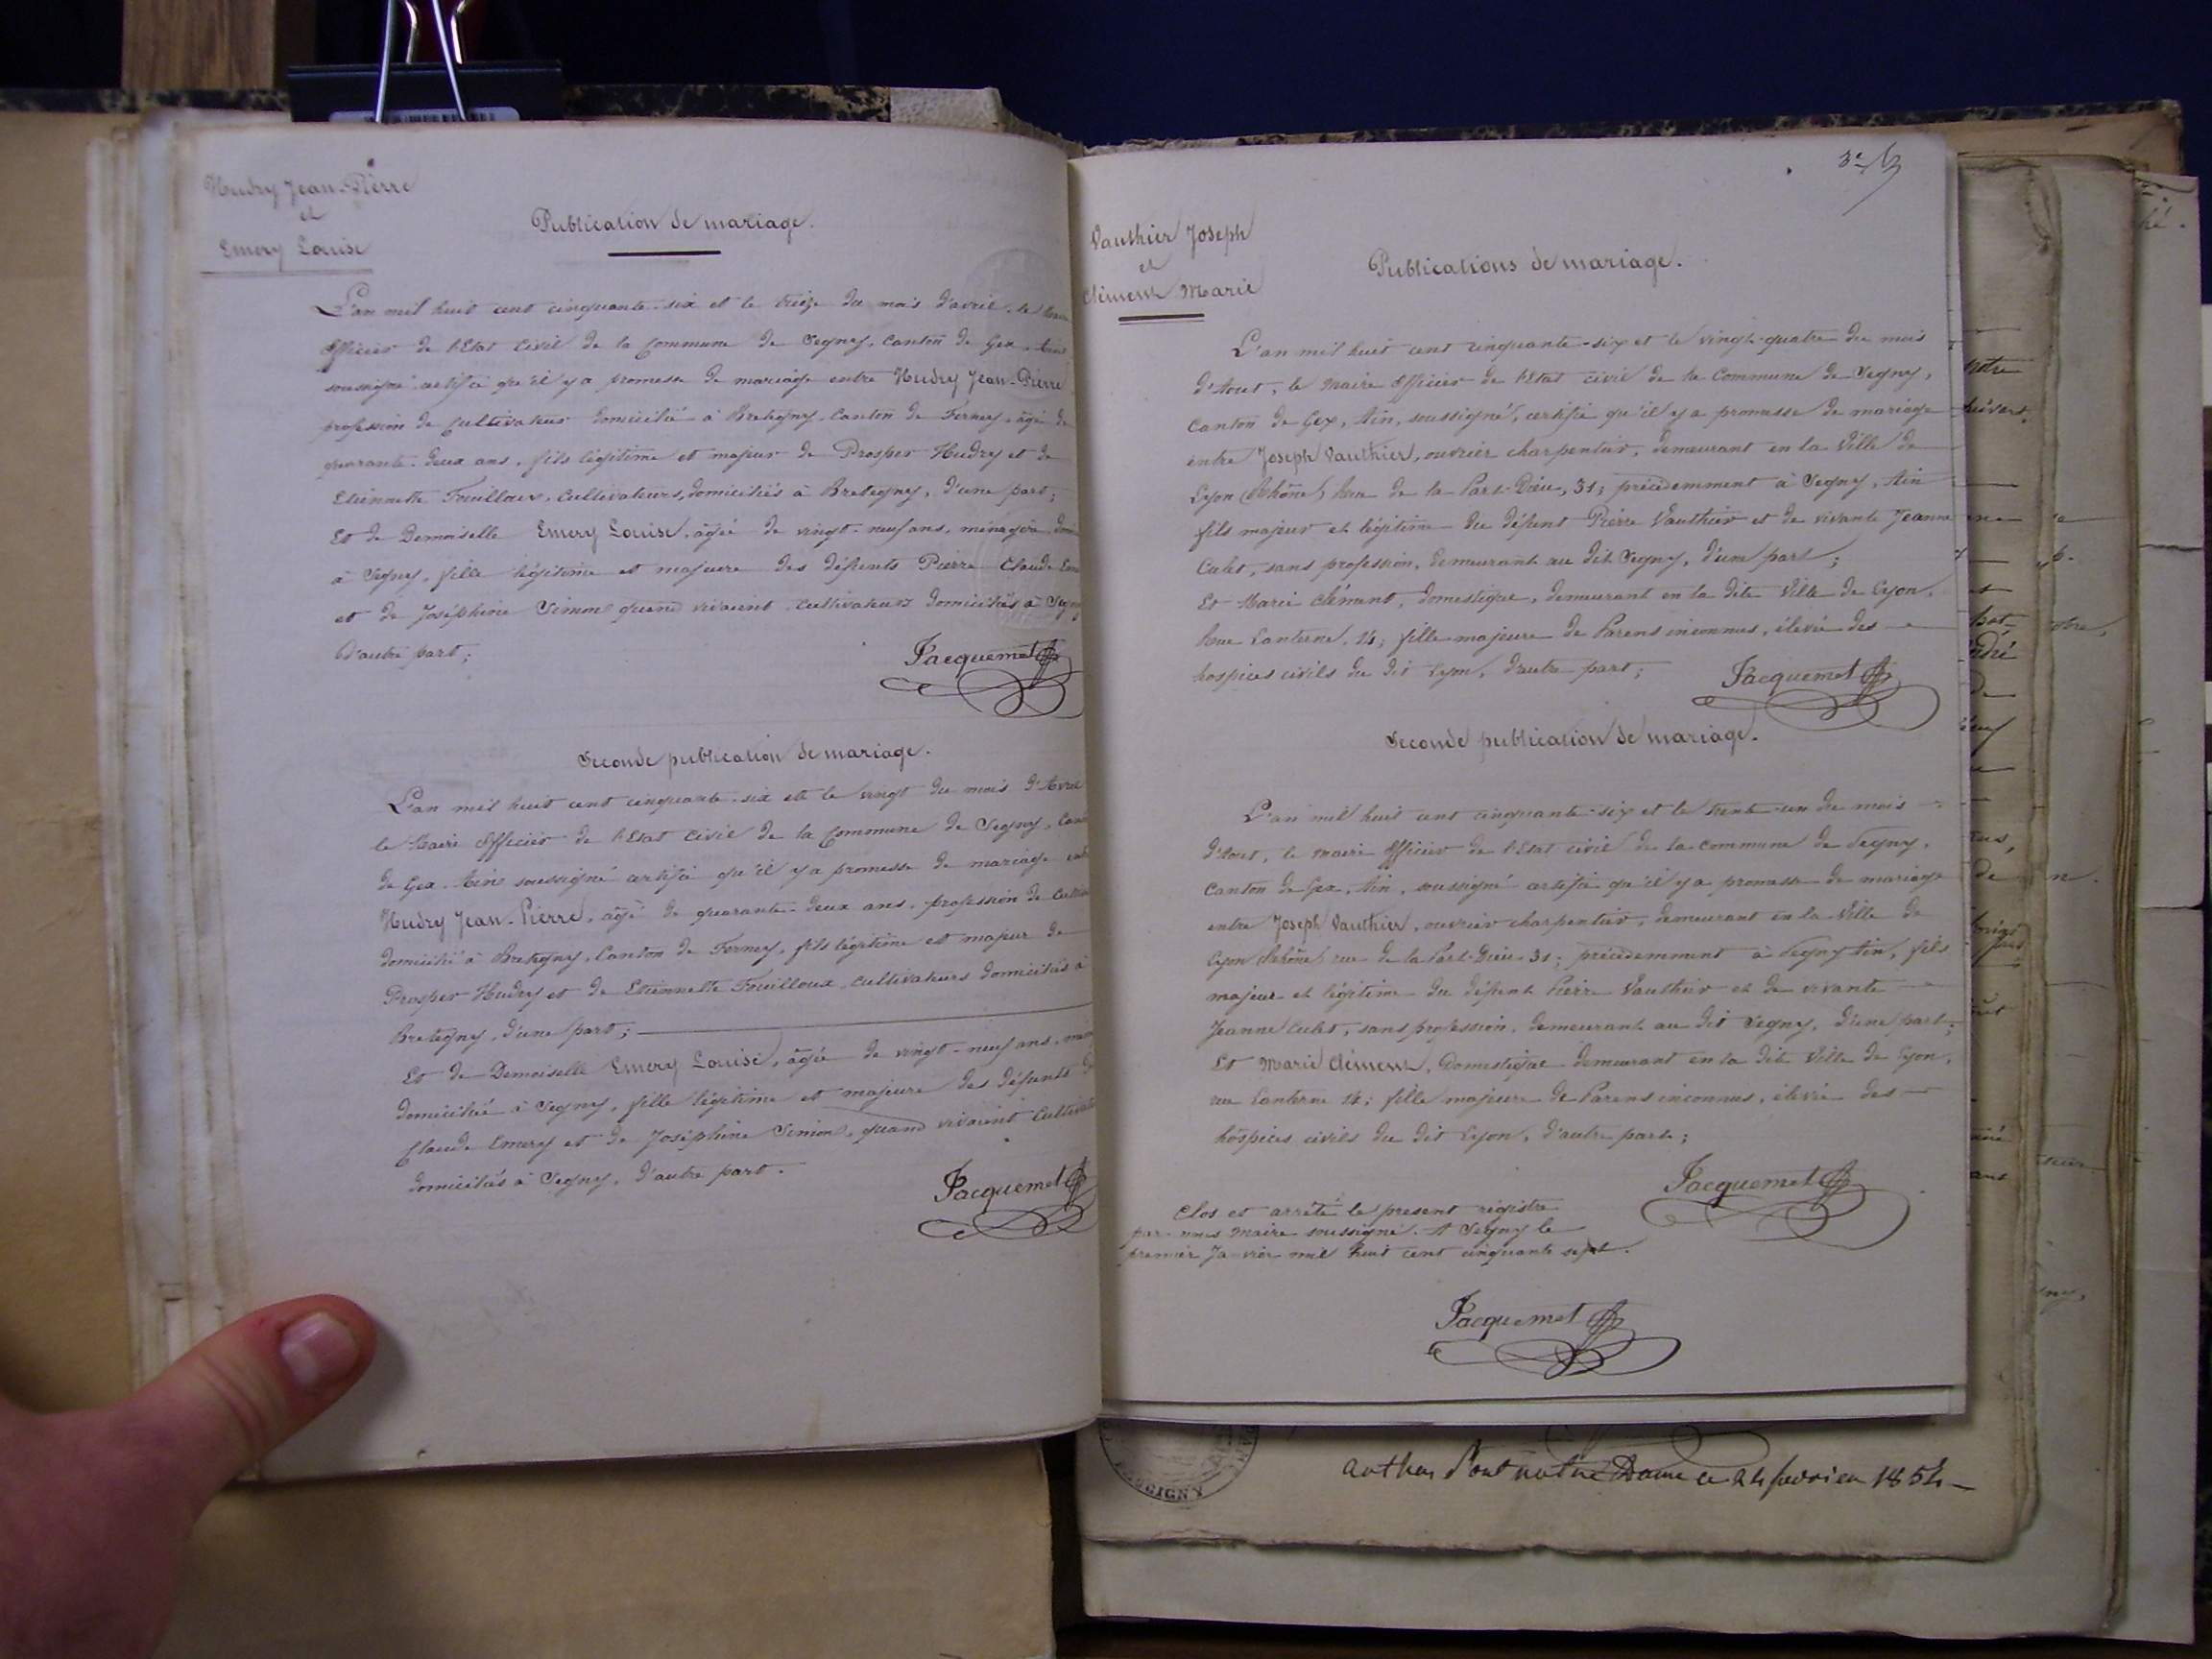 Hudry Jean-Pierre
et
Emery Louise
Publication de mariage.
L'an mil huit cent cinquante-six et le treize du mois d'avril, le Maire
Officier de l'Etat Civil de la Commune de Segny, Canton de Gex, Ain,
soussigné certifie qu'il y a promesse de mariage entre Hudry Jean-Pierre
profession de Cultivateur domicilié à Bretigny, Canton de Ferney, âgé de
quarante-deux ans, fils légitime et majeur de Prosper Hudry et de
Etiennette Fouilloux, Cultivateurs, domiciliés à Bretegny, d'une part;
Et de Demoiselle Emery Louise, âgée de vingt-neuf ans, ménagère, domi
à Segny, fille légitime et majeure des défunts Pierre Claude Eme
et de Joséphine Simon quand vivaient, cultivateurs domiciliés à Segny
d'autre part;
Jacquemet
Seconde publication de mariage.
L'an mil huit cent cinquante-six et le vingt du mois d'Avril
le Maire Officier de l'Etat Civil de la Commune de Segny, Cant
de Gex, Ain, soussigné certifie qu'il y a promesse de mariage entre
Hudry Jean-Pierre, âgé de quarante-deux ans, profession de Cultiva
domicilié à Bretegny, Canton de Ferney, fils légitime et majeur de
Prosper Hudry et de Etiennette Fouilloux, cultivateurs domiciliés à
Bretegny, d'une part;
Et de Demoiselle Emery Louise, âgée de vingt-neuf ans, mén
domiciliée à Segny, fille légitime et majeure des défunts
Claude Emery et de Joséphine Simon, quand vivaient Cultivate
domiciliés à Segny, d'autre part.
Jacquemet
Vauthier Joseph
et
Clément Marie
Publications de mariage.
L'an mil huit cent cinquante-six et le vingt-quatre du mois
d'Aout, le Maire Officier de l'Etat civil de la Commune de Segny,
Canton de Gex, Ain, soussigné, certifie qu'il y a promesse de mariage
entre Joseph Vauthier, ouvrier charpentier, demeurant en la Ville de
Lyon (Rhône) Rue de la Part-Dieu, 31; précédemment à Segny, Ain
fils majeur et légitime du défunt Pierre Vauthier et de vivante Jeanne
Culet, sans profession, demeurant au dit Segny, d'une part;
Et Marie Clément, domestique, demeurant en la dite Ville de Lyon,
Rue Lanterne, 14; fille majeure de Parens inconnus, élevée des
hospices civils du dit Lyon, d'autre part;
Jacquemet
Seconde publication de mariage.
L'an mil huit cent cinquante-six et le trente-un du mois
d'Aout, le Maire Officier de l'Etat civil de la commune de Segny,
Canton de Gex, Ain, soussigné certifie qu'il y a promesse de mariage
entre Joseph Vauthier, ouvrier charpentier, demeurant en la Ville de
Lyon (Rhône) rue de la Part-Dieu 31; précédemment à Segny Ain, fils
majeur et légitime du défunt Pierre Vauthier et de vivante
Jeanne Culet, sans profession, demeurant au dit Segny, d'une part;
Et Marie Clément, Domestique demeurant en la dite Ville de Lyon,
rue Lanterne 14; fille majeure de Parens inconnus, élevée des
hospices civils du dit Lyon, d'autre part;
Jacquemet
Clos et arrêté le present registre
par nous Maire soussigné. A Segny le
premier Janvier mil huit cent cinquante sept.
Jacquemet
notre Dame ce 24 fevrier 1854